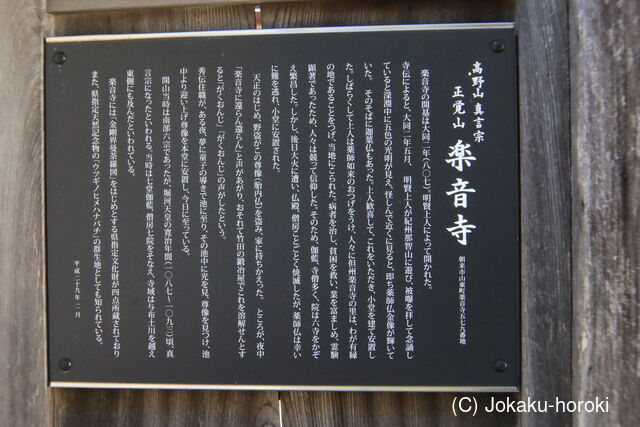 高野山真言宗
正覚山 楽音寺
朝来市山東町楽音寺五七九番地
楽音寺の開基は大同二年(八〇七)、明賢上人によって開かれた。
寺伝によると、大同二年五月、明賢上人が紀州那智山に遊び、被曝を拝して念誦し
ていると深淵中に五色の光明が見え、怪しんで近くに見ると、即ち薬師仏金像が輝いて
いた。そのそばに迦葉仏もあった。上人歓喜して、これをいただき、小堂を建て安置し
た。しばらくして上人は薬師如来のおつげをうけ、人々に但州楽音寺の里は、わが有縁
の地であることをつげ、当地にこられた。病者を治し、貧困を救い、業を富ましめ、霊験
顕著であったため、人々は競って信仰した。そのため、伽藍、寺僧多く、院は六寺をかぞ
え繁昌した。しかし、後日大火に遭い、仏殿、僧房ことごとく焼滅したが、薬師仏は幸い
に難を逃れ、小堂に安置された。
天正のはじめ、野盗がこの尊像(胎内仏)を盗み、家に持ちかえった。ところが、夜中
「楽音寺に還らん還らん」と声があがり、おそれて竹田の鍛冶屋でこれを溶解せんとす
ると「がくおんじ」「がくおんじ」の声がしたという。
秀伝住職が、ある夜、夢に童子の導きで池に至り、その池中に光を見、尊像を見つけ、池
中より迎い上げ尊像を本堂に安置し、今日に至っている。
開山当時は南都六宗であったが、堀河天皇の寛治年間(一〇八七〜一〇九三)頃、真
言宗になったといわれる。当時は七堂伽藍、僧房七院をそなえ、寺域は与布土川を越え
東側にも及んだといわれている。
楽音寺には、「金剛界曼荼羅図」をはじめとする県指定文化財が四点所蔵されており
また、県指定天然記念物の「ウツギノヒメハナバチ」の群生地としても知られている。
平成二十九年一月
(C) Jokaku-horoki